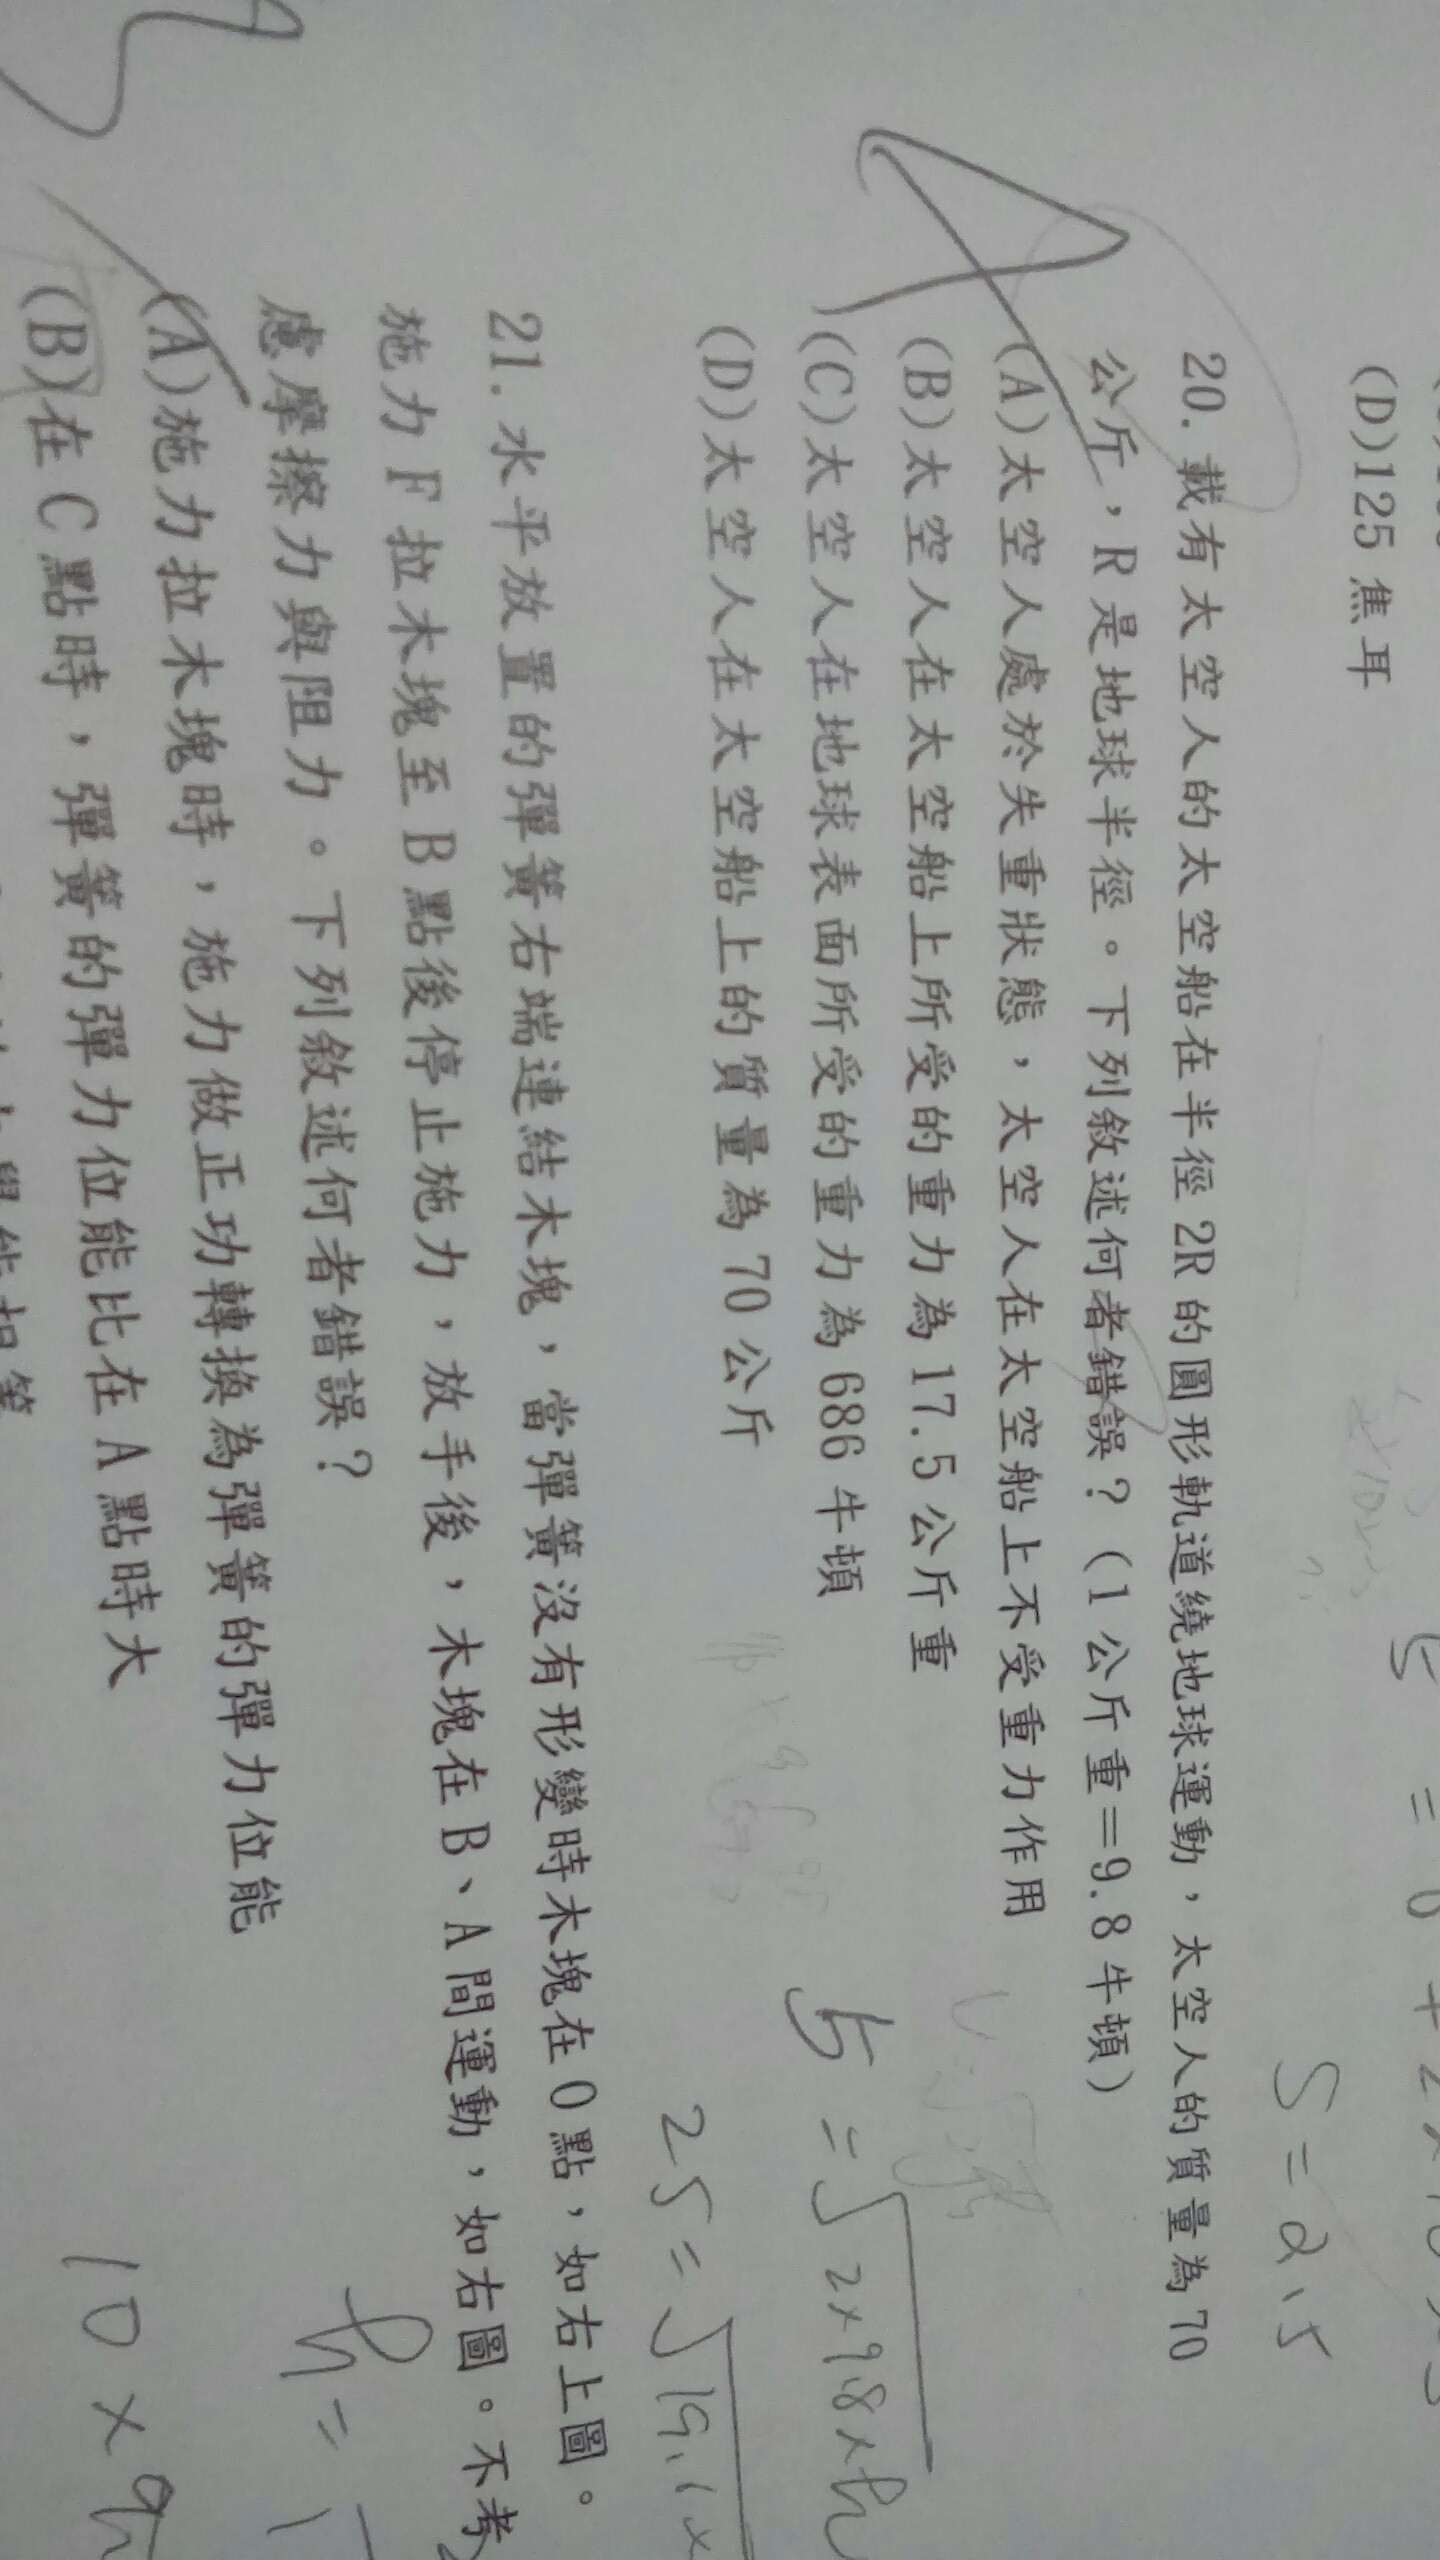 (D)125 焦耳
20. 載有太空人的太空船在半徑 2R 的圓形軌道繞地球運動，太空人的質量為 70
公斤，R 是地球半徑。下列敘述何者錯誤？(1 公斤重=9.8 牛頓)
(A)太空人處於失重狀態，太空人在太空船上不受重力作用
(B)太空人在太空船上所受的重力為 17.5 公斤重
(C)太空人在地球表面所受的重力為 686 牛頓
(D)太空人在太空船上的質量為 70 公斤
21. 水平放置的彈簧右端連結木塊，當彈簧沒有形變時木塊在 O 點，如右上圖。
施力 F 拉木塊至 B 點後停止施力，放手後，木塊在 B、A 間運動，如右圖。不考
慮摩擦力與阻力。下列敘述何者錯誤？
(A)施力拉木塊時，施力做正功轉換為彈簧的彈力位能
(B)在 C 點時，彈簧的彈力位能比在 A 點時大
S=2.5
5=√2×9.8×h
25=√19.6×
h=
10×9